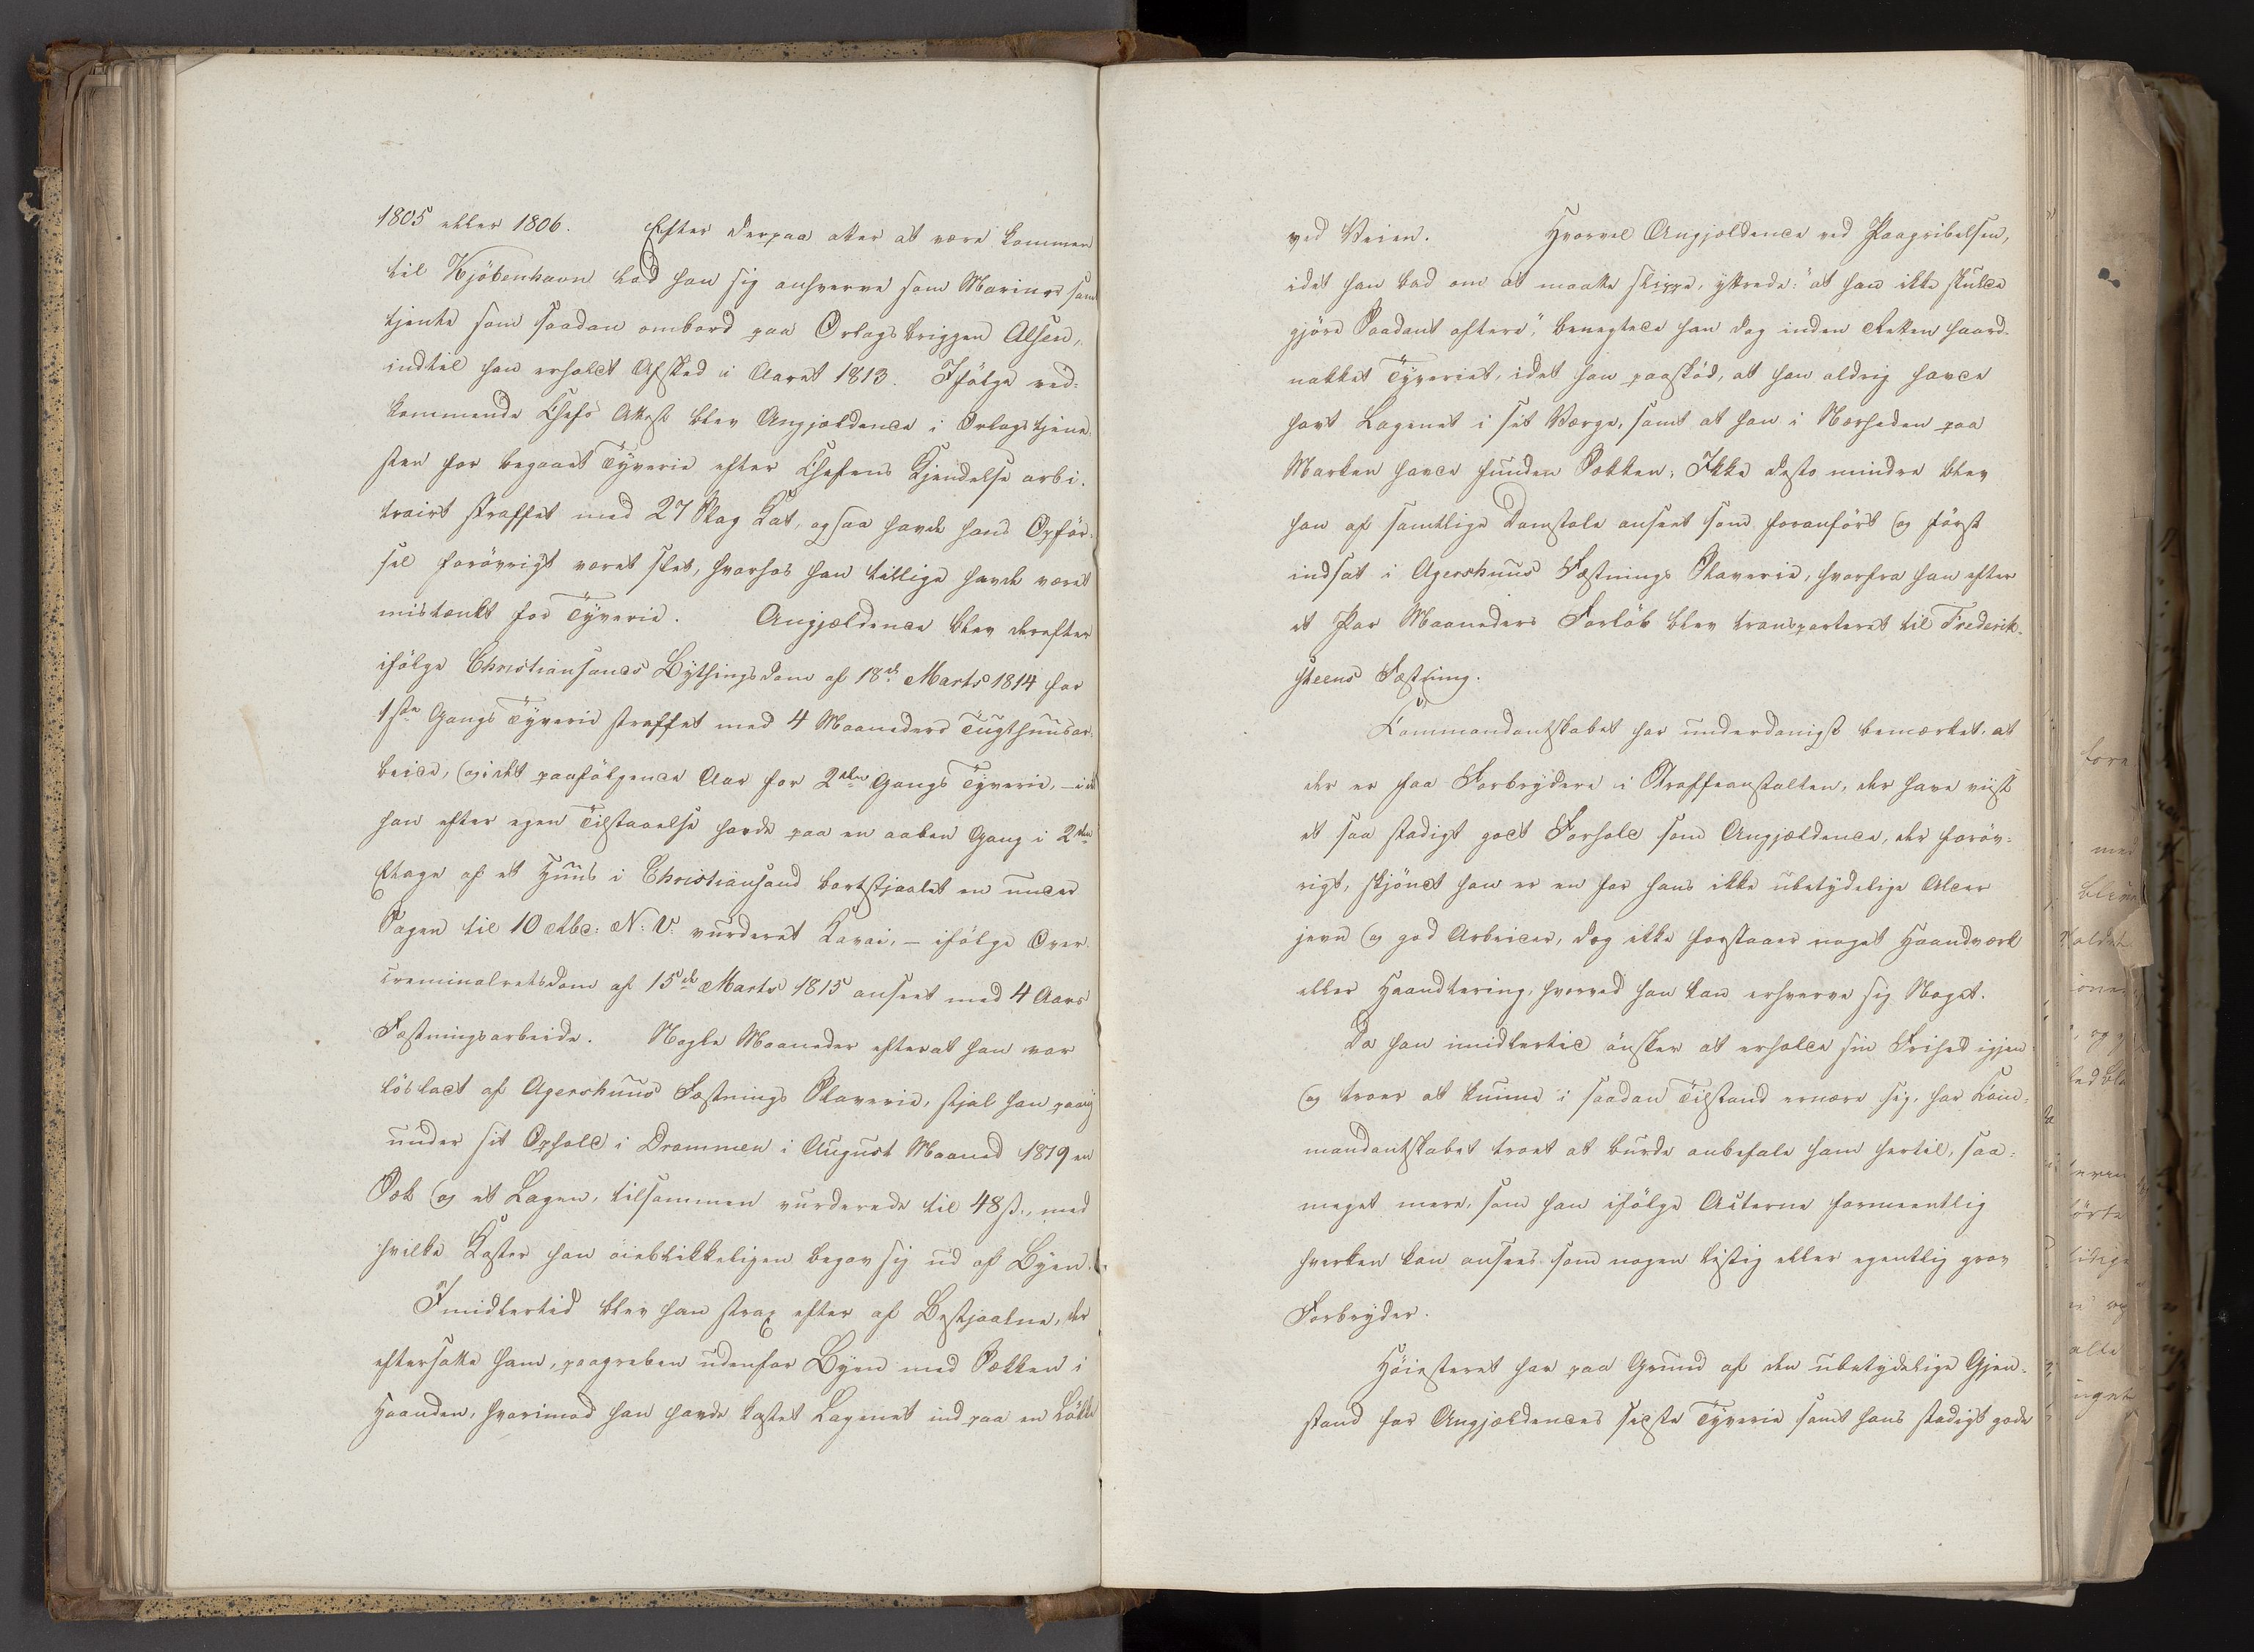 1805 eller 1806. Efter derpaa atter at være kommen
til Kjöbenhavn lod han sig anhverve som Mariner samt
tjente som saadan ombord paa Orlogsbriggen Alsen,
indtil han erholdt Afsked i Aaret 1813. Ifölge ved-
kommende Chefs Attest blev Angjældende i Orlogstjene-
sten for begaaet Tÿverie efter Chefens Kjendelse arbi-
trairt straffet med 27 Slag Kat, ogsaa havde hans Opför-
sel forövrigt været slet, hvorhos han tillige havde været
mistænkt for Tÿverie. Angjældende blev derefter
ifölge Christiansands Bÿthingsdom af 18de Marts 1814 for
1ste Gangs Tÿverie straffet med 4 Maaneders Tugthuusar-
beide, og i det paafölgende Aar for 2den Gangs Tÿverie, – idet
han efter egen Tilstaaelse havde paa en aaben Gang i 2den
Etage af et Huus i Christiansand bortstjaalet en under
Sagen til 10 Rbd: N: V: vurderet Kavai, – ifölge Over-
creminalretsdom af 15de Marts 1815 anseet med 4 Aars
Fæstningsarbeide. Nogle Maaneder efterat han var
lösladt af Agershuus Fæstnings Slaverie, stjal han paanÿ
under sit Ophold i Drammen i August Maaned 1819 en
Sæk og et Lagen, tilsammen vurderede til 48 ß., med
hvilke Koster han öieblikkeligen begav sig ud af Byen.
Imidlertid blev han strax efter af Bestjaalne, der
eftersatte ham, paagreben udenfor Byen med Sækken i
Haanden, hvorimod han havde kastet Lagenet ind paa en Lökke
ved Veien. Hvorvel Angjældende ved Paagribelsen,
idet han bad om at maatte slippe, yttrede: "at han ikke skulde
gjöre Saadant oftere", benegtede han dog inden Retten haard-
nakket Tÿveriet, idet han paastod, at han aldrig havde
havt Lagenet i sit Værge, samt at han i Nærheden paa
Marken havde funden Sækken; Ikke desto mindre blev
han af samtlige Domstole anseet som foranfört og först
indsat i Agershuus Fæstnings Slaverie, hvorfra han efter
et Par Maaneders Forlöb blev transporteret til Frederik-
steens Fæstning.
Kommandantskabet har underdanigst bemærket, at
der er faa Forbrydere i Straffeanstalten, der have viist
et saa stadigt godt Forhold som Angjældende, der foröv-
rigt, skjöndt han er en for hans ikke ubetydelige Alder
jevn og god Arbeider, dog ikke forstaaer noget Haandværk
eller Haandtering, hvorved han kan erhverve sig Noget.
Da han imidlertid önsker at erholde sin Frihed igjen
og troer at kunne i saadan Tilstand ernære sig, har Kom-
mandantskabet troet at burde anbefale ham hertil, saa-
meget mere, som han ifölge Acterne formeentlig
hverken kan ansees som nogen listig eller egentlig grov
Forbryder.
Höiesteret har paa Grund af den ubetydelige Gjen-
stand for Angjældendes sidste Tÿverie samt hans stadigt gode